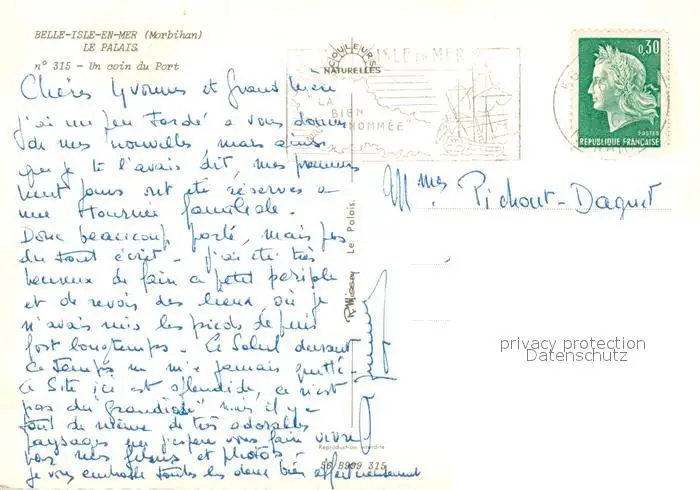 BELLE-ISLE-EN-MER (Morbihan)
LE PALAIS
n° 315 - Un coin du Port
COULEURS
NATURELLES
ISLE EN MER
LA
BIEN
NOMMÉE
0,30
POSTES
RÉPUBLIQUE FRANÇAISE
Chères Yvonne et Grand'mère
j'ai un peu tardé a vous donner
de mes nouvelles, mais ainsi
que je te l'avais dit, mes premiers
vingt jours ont été réservés a
une tournée familiale.
Donc beaucoup parlé, mais pas
du tout écrit. j'ai été très
heureux de faire ce petit périple
et de revoir des lieux où je
n'avais mis les pieds depuis
fort longtemps. Le Soleil durant
ce temps ne m'a jamais quitté.
Ce Site ici est splendide, ce n'est
pas du "Grandiose" mais il y a
tout de même de très adorables
paysages que j'espère vous faire vivre
par mes films et photos.
je vous embrasse toutes les deux bien affectueusement
Mmes Pichout-Daguet
Le Palais.
Reproduction interdite
56 B999 315
privacy protection
Datenschutz